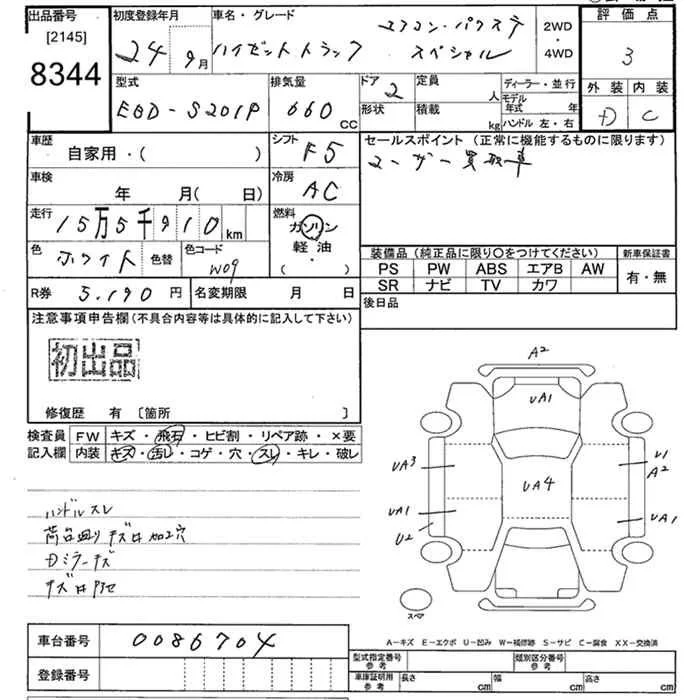 出品番号
[2145]
8344
初度登録年月
24年 9月
車名・グレード
ハイゼットトラック
エアコン・パワステ
スペシャル
2WD
・
4WD
評価点
3
外装 内装
D C
型式
EBD-S201P
排気量
660
CC
ドア 2
形状
定員
人
積載
kg
ディーラー・並行
モデル
年式 年
ハンドル 左・右
車歴
自家用・( )
シフト
F5
セールスポイント (正常に機能するものに限ります)
ユーザー買取車
車検
年 月( 日)
冷房
AC
走行
15万5千910km
燃料
ガソリン
軽油
( ・ )
色
ホワイト
色替
色コード
W09
装備品(純正品に限り○をつけてください)
新車保証書
PS PW ABS エアB AW
SR ナビ TV カワ
有・無
R券 5,190 円
名変期限 月 日
後日品
注意事項申告欄(不具合内容等は具体的に記入して下さい)
初出品
修復歴 有 〔箇所 〕
検査員
記入欄
FW キズ・飛石・ヒビ割・リペア跡・×要
内装 キズ・汚レ・コゲ・穴・スレ・キレ・破レ
ハンドルスレ
荷台廻りキズ凹加工穴
Dミラーキズ
A2
UA1
UA3
U1
A2
UA4
UA1
U2
UA1
スペア
A-キズ E-エクボ U-凹み W-補修跡 S-サビ C-腐食 XX-交換済
車台番号 0086704
登録番号
型式指定番号
参考
類別区分番号
参考
車庫証明用
参考
長さ cm
幅 cm
高さ cm